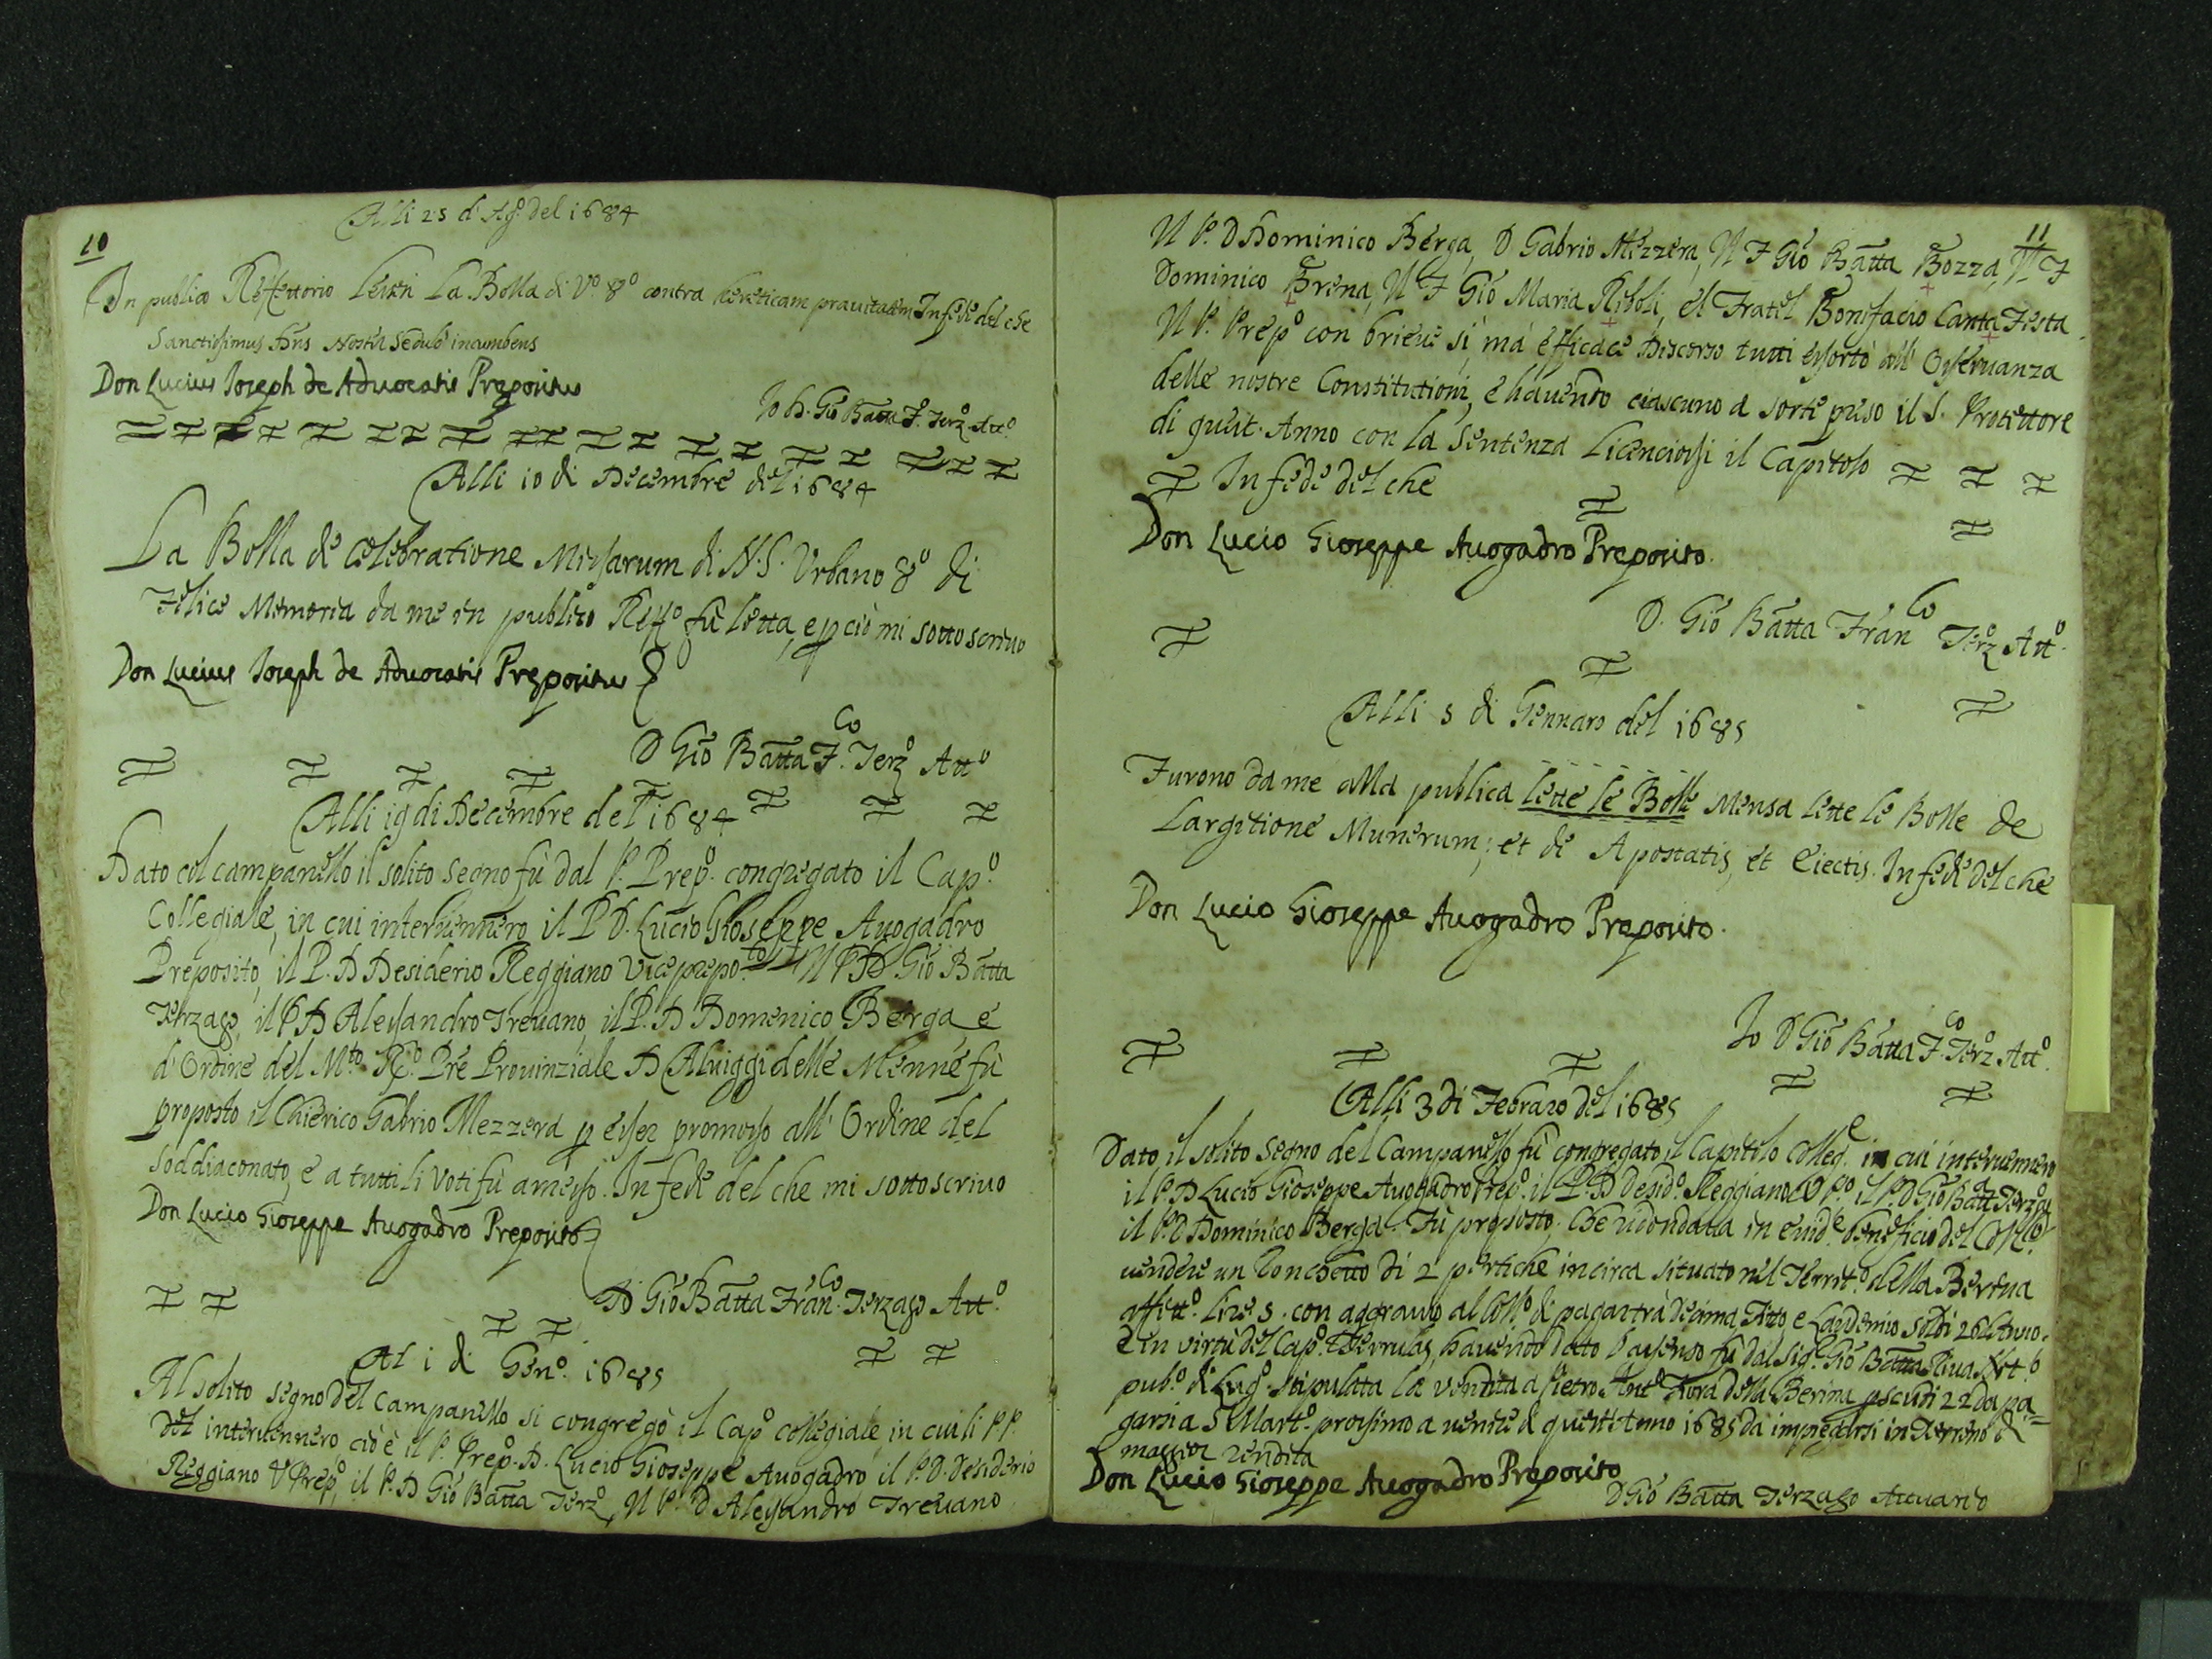 10
Alli 25 d' Agº del 1684
In publico Reffettorio lessi La Bolla di Vº 8º contra hereticam prauitatem In fede del che
Sanctissimus Dns Noster Sedulò incumbens
Don Lucius Ioseph de Aduocatis Prepositus
Io D. Gio Batta F. Terzº Attº
Alli 10 di Decembre del 1684
La Bolla de Celebratione Missarum di N.S. Vrbano 8º di
Felice Memoria da me in publico Reffº fù letta, e p ciò mi sottoscriuo
Don Lucius Ioseph de Aduocatis Prepositus
D Gio Batta F.co Terzº Attº
Alli 19 di Decembre del 1684
Dato col campanello il solito segno fù dal P. Prepº congregato il Capº
Collegiale, in cui interuennero il P D. Lucio Gioseppe Auogadro
Preposito, il P. D Desiderio Reggiano Viceprepoto Il P D Gio Batta
Terzago, il P D Alessandro Treuano, il P. D Domenico Berga e
d'Ordine del Mto Rdo Pre Prouinziale D Aluiggi delle Menne fù
proposto il Chierico Gabrio Mezzera p esser promosso all' Ordine del
soddiaconato, e a tutti li voti fù amesso. In fede del che mi sottoscriuo
Don Lucio Gioseppe Auogadro Preposito
D Gio Batta Fran.co Terzago Attº
Al i di Genº 1685
Al solito segno del Campanello si congregò il Capº collegiale, in cui li PP.
del interuennero cioè il P. Prepº D. Lucio Gioseppe Auogadro il P. D. Desiderio
Reggiano V Prepº, il P. D Gio Batta Terzº, Il P. D Alessandro Treuano
11
Il P. D Dominico Berga, D Gabrio Mezzera, Il F Gio Batta Bozza, Il F
Dominico Brena, Il F Gio Maria Riboli, el Fratel Bonifacio Canta Testa.
Il P. Prepº con brieue sì, mà efficace Discorso tutti essortò all' Osseruanza
delle nostre Constitutioni, e hauendo ciascuno a sorte preso il S. Protettore
di quest' Anno con la Sentenza Licenciossi il Capitolo
In fede del che
Don Lucio Gioseppe Auogadro Preposito.
D. Gio Batta Fran.co Terzº Attº
Alli 5 di Gennaro del 1685
Furono da me alla publica lette le Bolle Mensa lette le Bolle de
Largitione Munerum; et de Apostatis, et Eiectis. In fede del che
Don Lucio Gioseppe Auogadro Preposito.
Io D Gio Batta F.co Terzº Attº
Alli 3 di Febraro del 1685
Dato il solito segno del Campanello fù congregato il Capitolo Colleg.e in cui interuennero
il P. D Lucio Gioseppe Auogadro Prepº il P. D Desidº Reggiano V Pº il P. D Gio Batta Terzago
il P. D Dominico Berga. Fù proposto. Che ridondaua in euid.e beneficio del Collº
uendere un Ronchetto di 2 pertiche incirca situato nel Territº della Bertua
affittº lire 5. con aggrauio al Collº di pagar trà decima fitto, e Laudemio soldi 26 l'Anno.
e in virtù del Capº hauendo dato l'assenso fù dal Sigr Gio Batta Riua Notº
pubº di Lugº stipulata la vendita a Pietro Antº Fora della Berina p scudi 22 da pa=
garsi a S Martº prossimo a uenire di quest' Anno 1685 da impiegarsi in Terreno di
maggior rendita
Don Lucio Gioseppe Auogadro Preposito
D Gio Batta Terzago Attuario